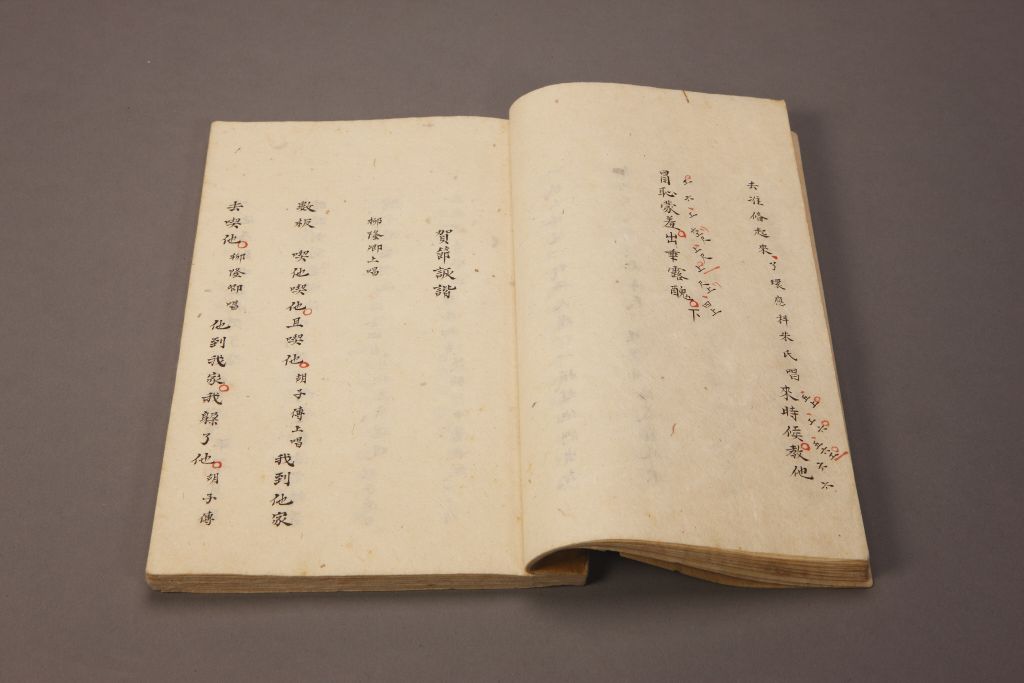 去准俻起來了環應科朱氏唱來時候教他
冒恥蒙羞出乖露醜下
賀節詼諧
柳隆卿上唱
數板 喫他喫他且喫他胡子傳上唱我到他家
去喫他柳隆卿唱他到我家我躲了他胡子傳